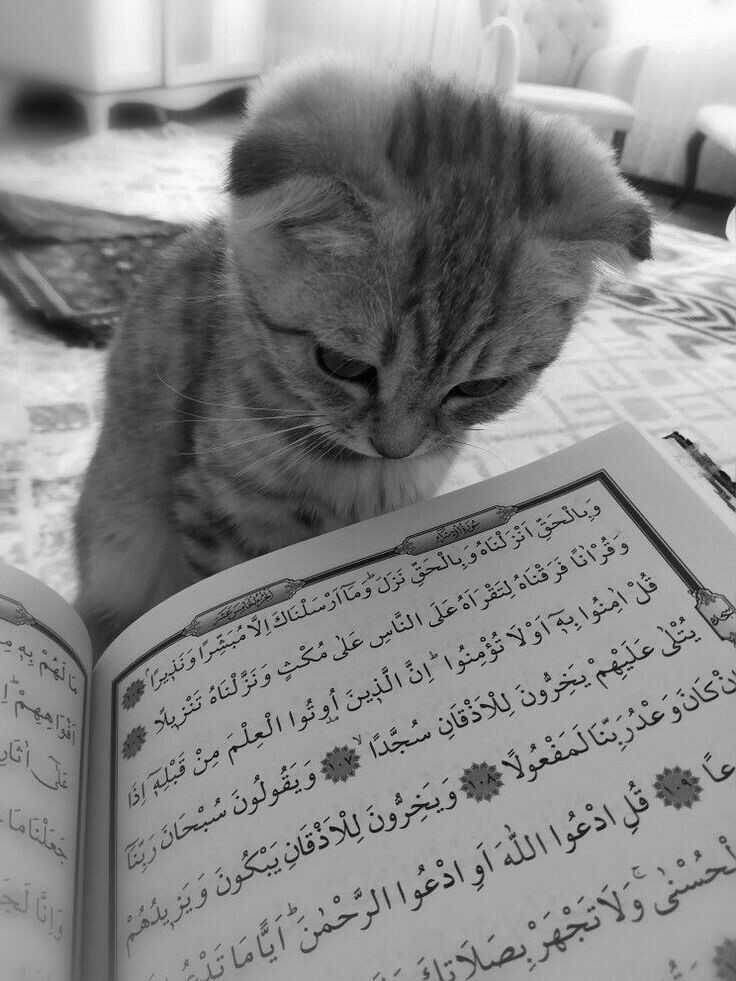 سُورَةُ الْاِسْرَاءِ
وَبِالْحَقِّ اَنْزَلْنَاهُ وَبِالْحَقِّ نَزَلَۜ وَمَٓا اَرْسَلْنَاكَ اِلَّا مُبَشِّرًا وَنَذ۪يرًاۢ ﴿١٠٥﴾
وَقُرْاٰنًا فَرَقْنَاهُ لِتَقْرَاَهُ عَلَى النَّاسِ عَلٰى مُكْثٍ وَنَزَّلْنَاهُ تَنْز۪يلًا ﴿١٠٦﴾
قُلْ اٰمِنُوا بِه۪ٓ اَوْ لَا تُؤْمِنُواۜ اِنَّ الَّذ۪ينَ اُو۫تُوا الْعِلْمَ مِنْ قَبْلِه۪ٓ اِذَا
يُتْلٰى عَلَيْهِمْ يَخِرُّونَ لِلْاَذْقَانِ سُجَّدًاۙ ﴿١٠٧﴾ وَيَقُولُونَ سُبْحَانَ رَبِّنَٓا
اِنْ كَانَ وَعْدُ رَبِّنَا لَمَفْعُولًا ﴿١٠٨﴾ وَيَخِرُّونَ لِلْاَذْقَانِ يَبْكُونَ وَيَز۪يدُهُمْ
عًا ﴿١٠٩﴾ قُلِ ادْعُوا اللّٰهَ اَوِ ادْعُوا الرَّحْمٰنَۜ اَيًّا مَا تَدْعُ
لْحُسْنٰىۚ وَلَا تَجْهَرْ بِصَلَاتِكَ
مَا لَهُمْ بِه۪
اَفْوَاهِهِمْۜ
عَلٰٓى اٰثَارِ
جَعَلْنَا مَا
وَاِنَّا لَجَ